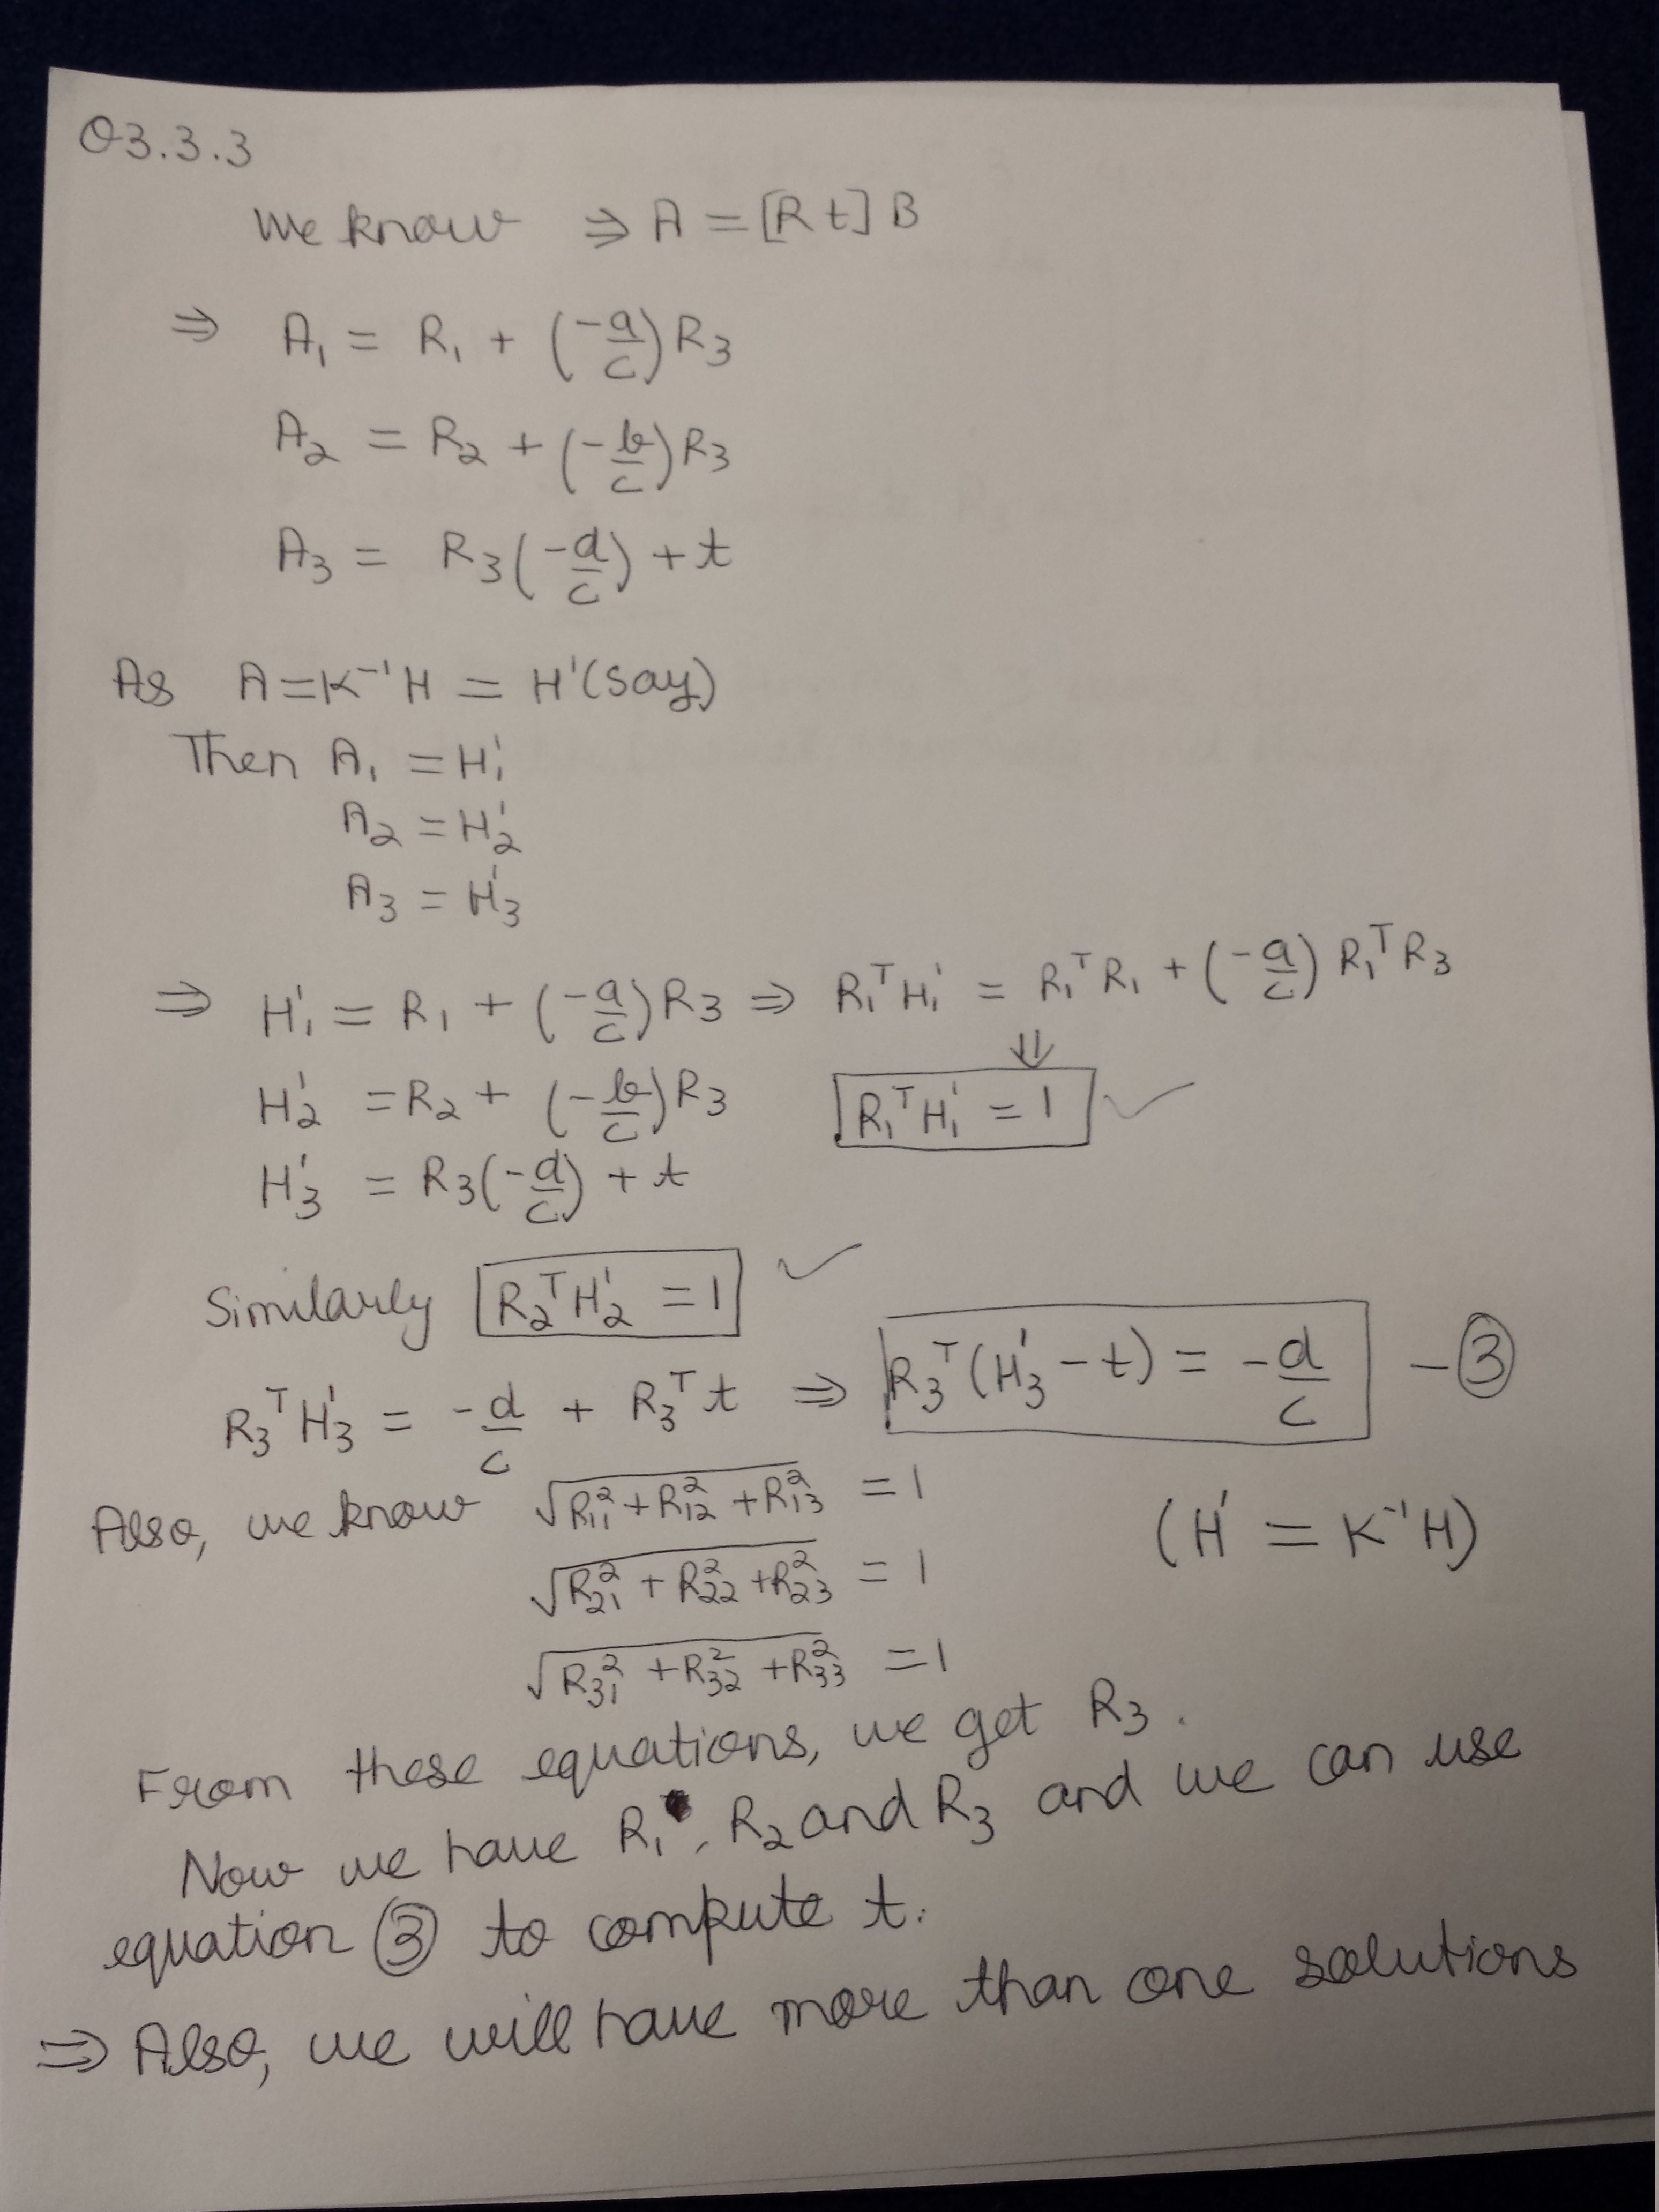 Q3.3.3
We know ⇒ A = [R t] B
⇒ A₁ = R₁ + (-a/c) R₃
A₂ = R₂ + (-b/c) R₃
A₃ = R₃(-d/c) + t
As A = K⁻¹H = H'(say)
Then A₁ = H'₁
A₂ = H'₂
A₃ = H'₃
⇒ H'₁ = R₁ + (-a/c) R₃ ⇒ R₁ᵀH'₁ = R₁ᵀR₁ + (-a/c) R₁ᵀR₃
⇓
H'₂ = R₂ + (-b/c) R₃ R₁ᵀH'₁ = 1 ✓
H'₃ = R₃(-d/c) + t
Similarly R₂ᵀH'₂ = 1 ✓
R₃ᵀH'₃ = -d/c + R₃ᵀt ⇒ R₃ᵀ(H'₃ - t) = -d/c - ③
Also, we know √(R₁₁² + R₁₂² + R₁₃²) = 1
(H' = K⁻¹H)
√(R₂₁² + R₂₂² + R₂₃²) = 1
√(R₃₁² + R₃₂² + R₃₃²) = 1
From these equations, we get R₃.
Now we have R₁, R₂ and R₃ and we can use
equation ③ to compute t.
⇒ Also, we will have more than one solutions